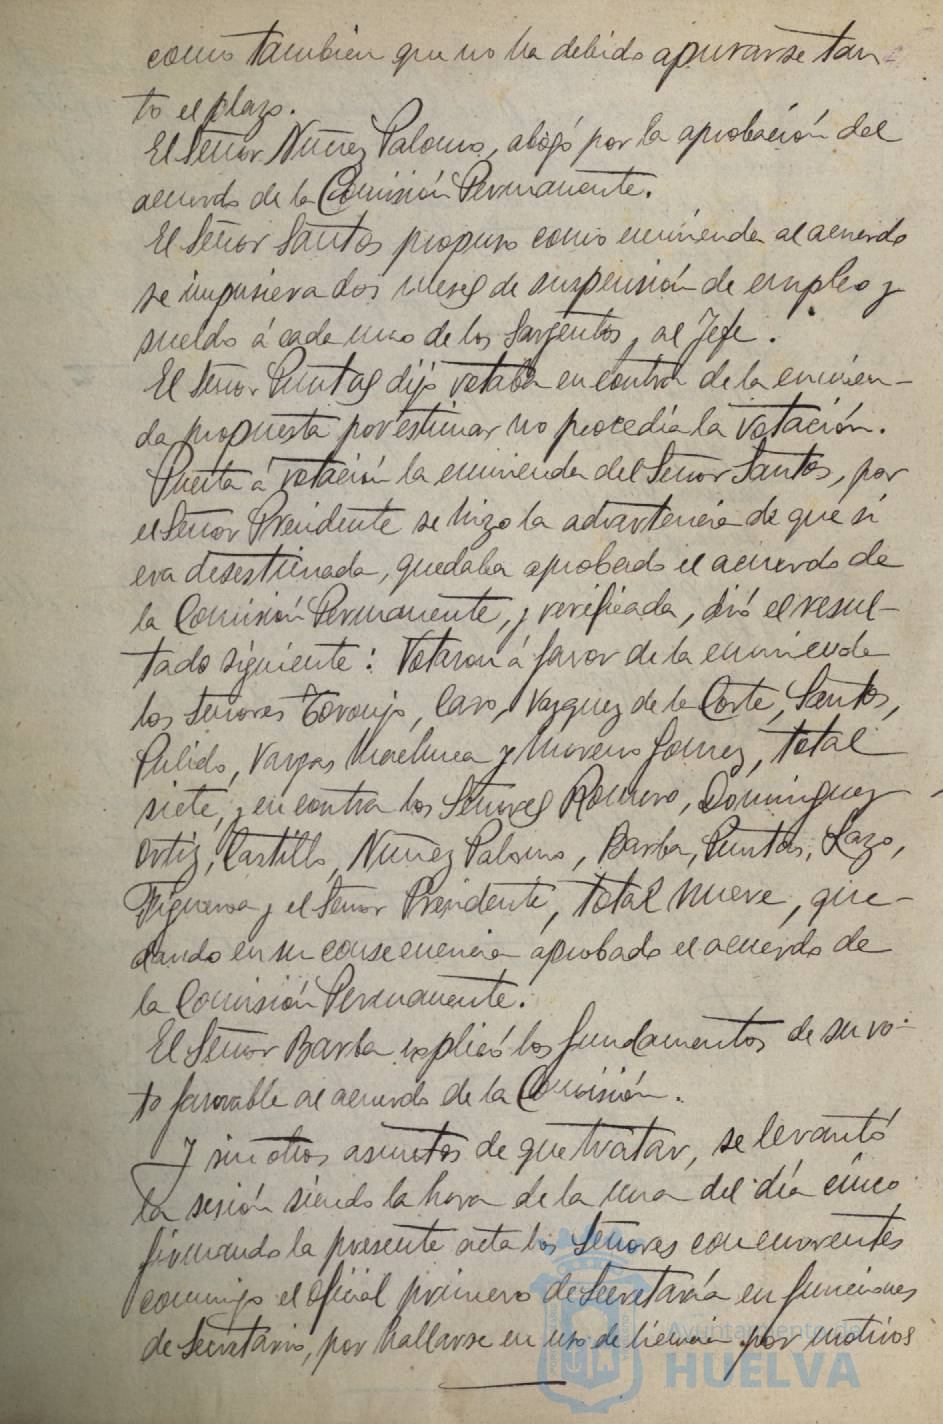 como también que no ha debido apurarse tan-
to el plazo.
El Señor Nuñez Palomo, abogó por la aprobación del
acuerdo de la Comisión Permanente.
El Señor Santos propuso como enmienda al acuerdo
se impusiera dos meses de suspensión de empleo y
sueldo á cada uno de los Sargentos, al Jefe.
El Señor Puntas dijo votaba en contra de la enmien-
da propuesta por estimar no procedía la votación.
Puesta á votación la enmienda del Señor Santos, por
el Señor Presidente se hizo la advertencia de que si
era desestimada, quedaba aprobado el acuerdo de
la Comisión Permanente, y verificada, dió el resul-
tado siguiente: Votaron á favor de la enmienda
los Señores Toronjo, Caro, Vazquez de la Corte, Santos,
Pulido, Vargas Machuca y Moreno Gomez, total
siete, y en contra los Señores Romero, Dominguez
Ortiz, Castillo, Nuñez Palomo, Barba, Puntas, Lazo,
Figueroa y el Señor Presidente, total nueve, que-
dando en su consecuencia aprobado el acuerdo de
la Comisión Permanente.
El Señor Barba explicó los fundamentos de su vo-
to favorable al acuerdo de la Comisión.
Y sin otros asuntos de que tratar, se levantó
la sesión siendo la hora de la una del día cinco
firmando la presente acta los Señores concurrentes
conmigo el oficial primero de Secretaría en funciones
de Secretario, por hallarse en uso de licencia por motivos
Ayuntamiento de
HUELVA